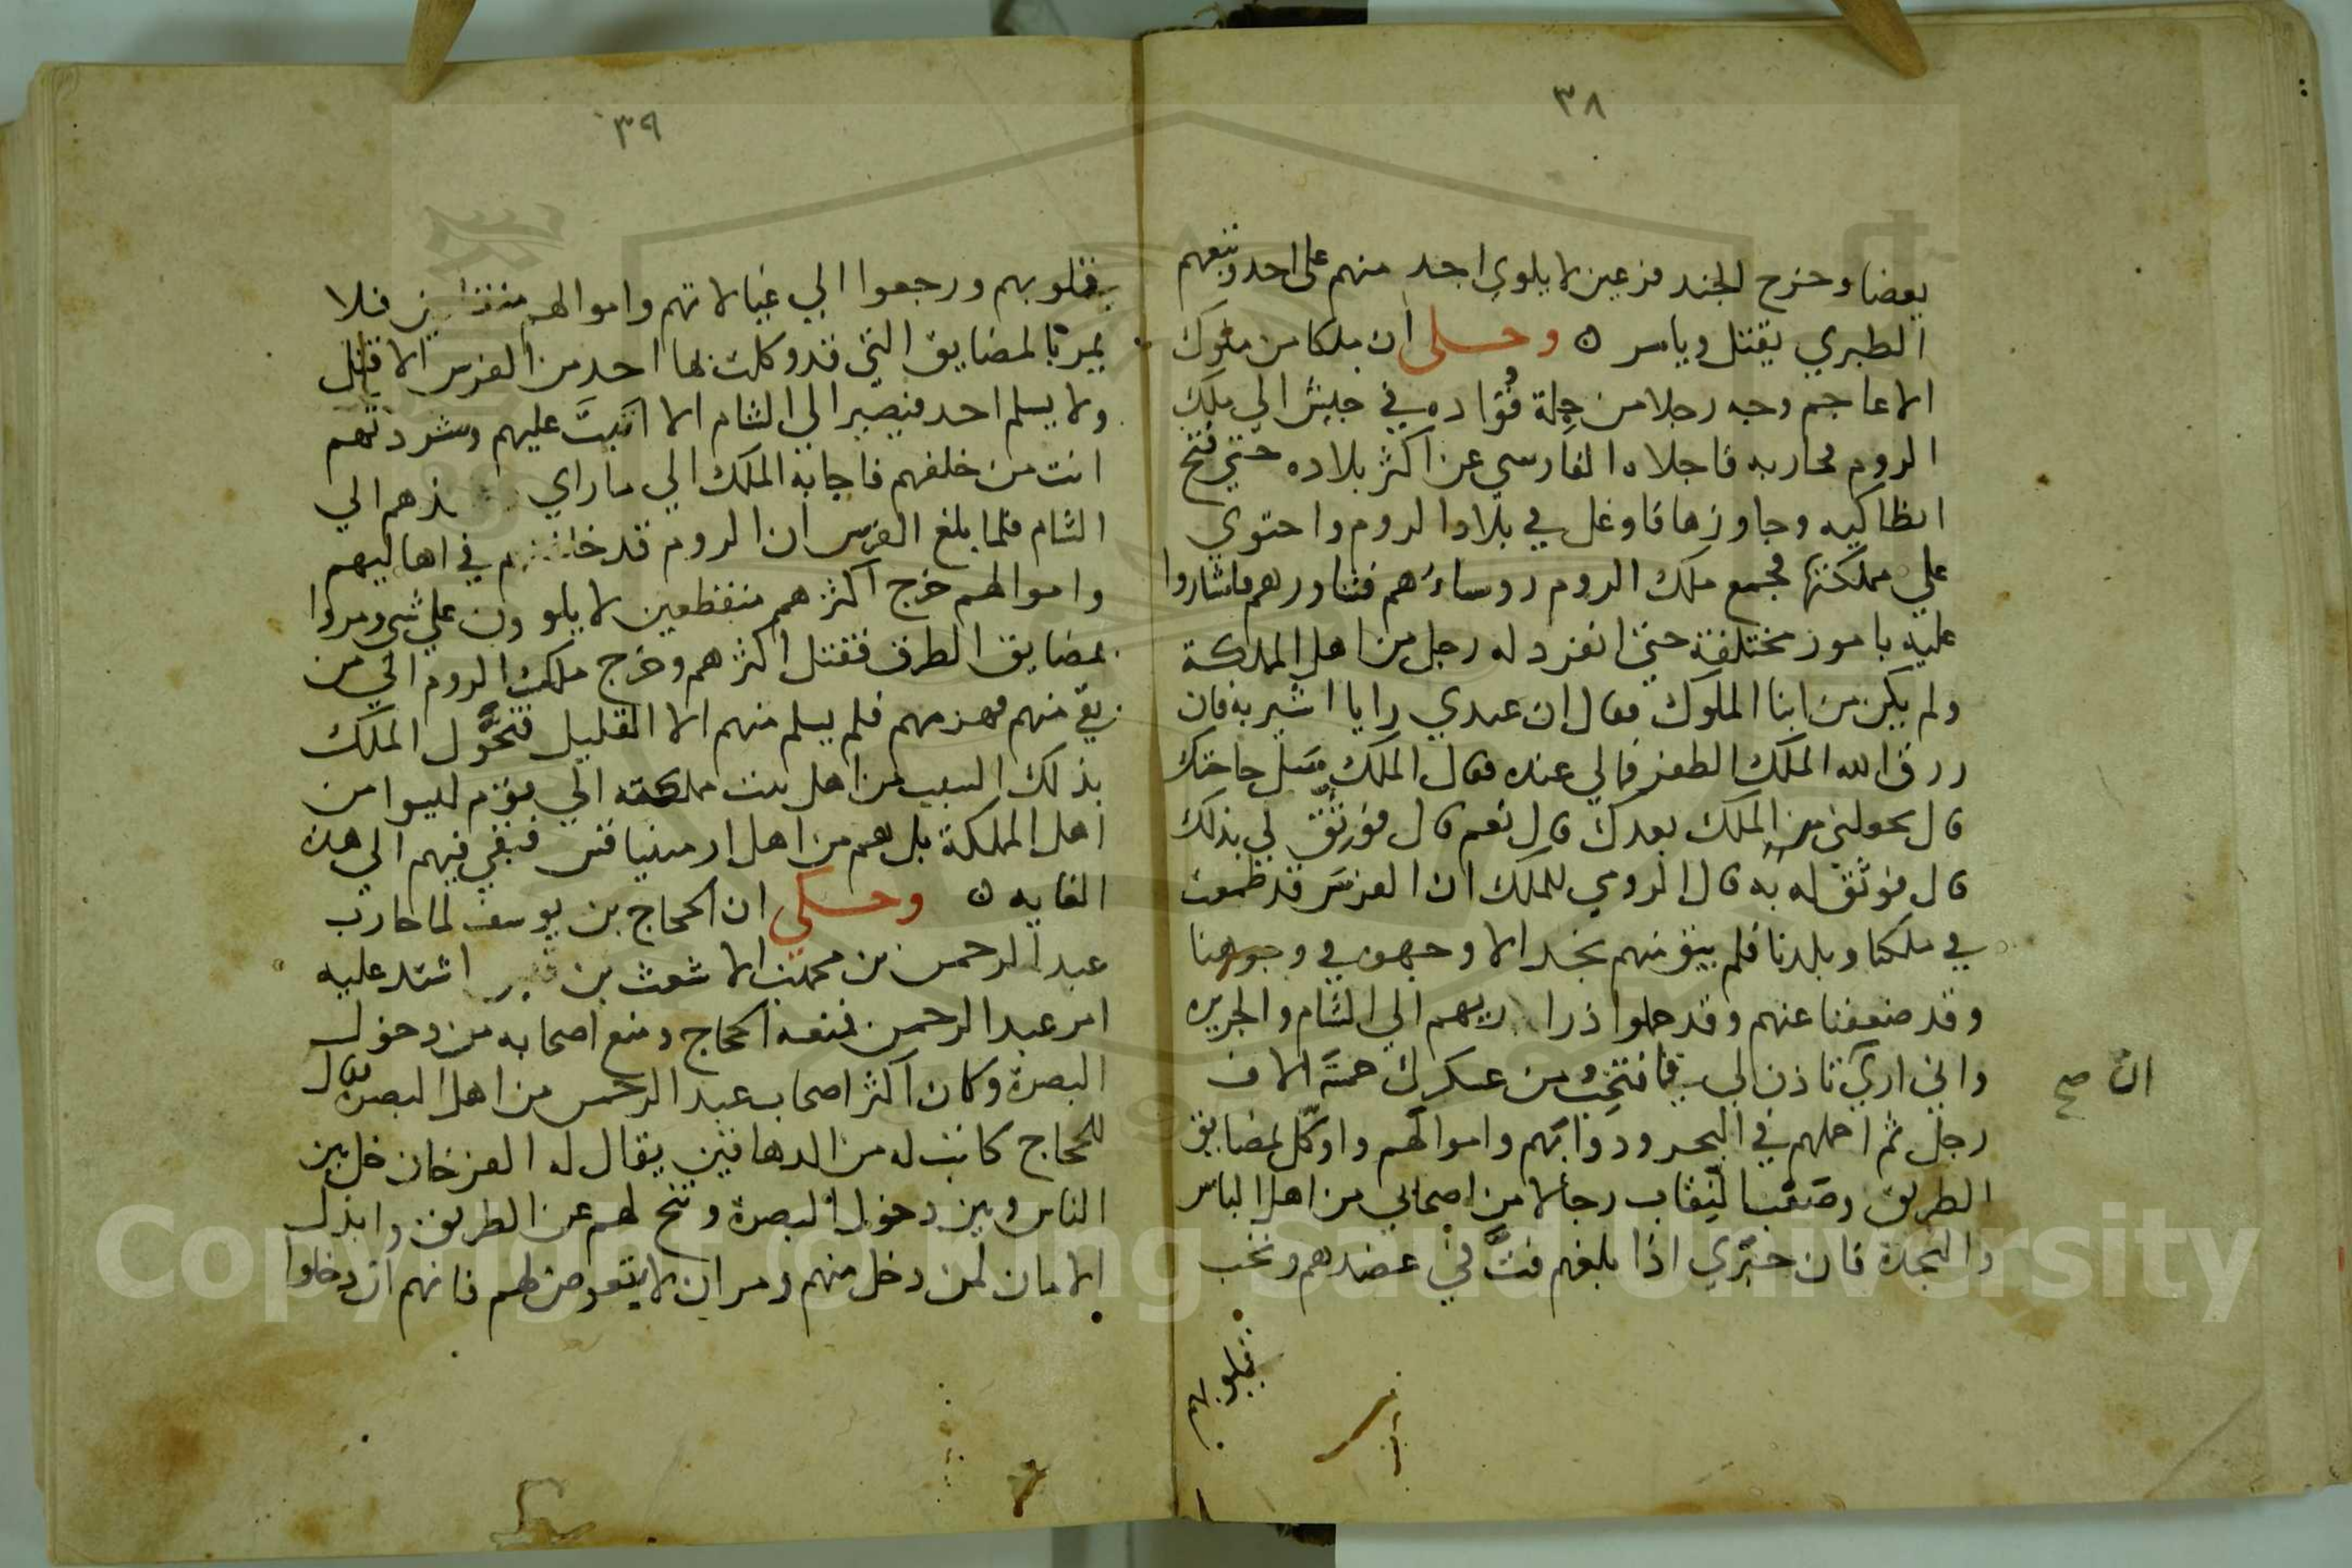 ٣٨
بعضا وخرج الجند فزعين لا يلوي احد منهم على احد وتبعهم
الطبري يقتل وياسر ٥ وحكى ان ملكا من ملوك
الاعاجم وجه رجلا من جلة قواده في جيش الي ملك
الروم محاربه فاجلاه الفارسي عن اكثر بلاده حتي فتح
انطاكيه وجاوزها فاوغل في بلاد الروم واحتوي
علي مملكتها فجمع ملك الروم روساءهم فشاورهم فاشاروا
عليه بامور مختلفة حتى انفرد له رجل من اهل المملكة
ولم يكن من ابنا الملوك فقال ان عندي رايا اشير به فان
رزق الله الملك الظفر فمالي عنده فقال الملك سل حاجتك
قال تحولني من الملك بعدك قال نعم قال فوثق لي بذلك
قال فوثق له به قال الرومي للملك ان الفرس قد طمعت
في ملكنا وبلدنا فلم يبق منهم نجد الا وجهوه في وجوهنا
وقد ضعفنا عنهم وقد حملوا ذراريهم الي الشام والجزيره
واني اري تاذن لي فانتخب من عسكرك خمسة الاف
ان صح
رجل ثم احملهم في البحر ودوابهم واموالهم واوكل بمضايق
الطريق وصعب النقاب رجالا من اصحابي من اهل الباس
والنجدة فان خبري اذا بلغهم فت في عضدهم ونخب
قلوبهم
٣٩
قلوبهم ورجعوا الي عيالاتهم واموالهم فلا
يمر بالمضايق التي قد وكلت بها احد من الفرس الا قتل
ولا يسلم احد فيصير الي الشام الا اتيت عليهم وشردتهم
انت من خلفهم فاجابه الملك الي ما راي الي
الشام فلما بلغ الفرس ان الروم قد في اهاليهم
واموالهم خرج اكثرهم منقطعين لا يلوون علي شي ومروا
بمضايق الطرق فقتل اكثرهم وخرج ملك الروم الي من
بقي منهم فهزمهم فلم يسلم منهم الا القليل فتحول الملك
بذلك السبب من اهل بيت مملكته الي قوم ليسوا من
اهل المملكة بل هم من اهل ارمنياقس فبقي فيهم الي هذه
الغايه ٥ وحكي ان الحجاج بن يوسف لما حارب
عبد الرحمن بن محمد بن الاشعث بن اشتد عليه
امر عبد الرحمن فمنعه الحجاج ومنع اصحابه من دخول
البصرة وكان اكثر اصحاب عبد الرحمن من اهل البصرة فقال
للحجاج كاتب له من الدهاقين يقال له خل بين
الناس وبين دخول البصرة وتنح لهم عن الطريق وابذل
الامان لمن دخل منهم ومر ان لا يتعرض لهم فانهم ان دخلوا
Copyright © King Saud University